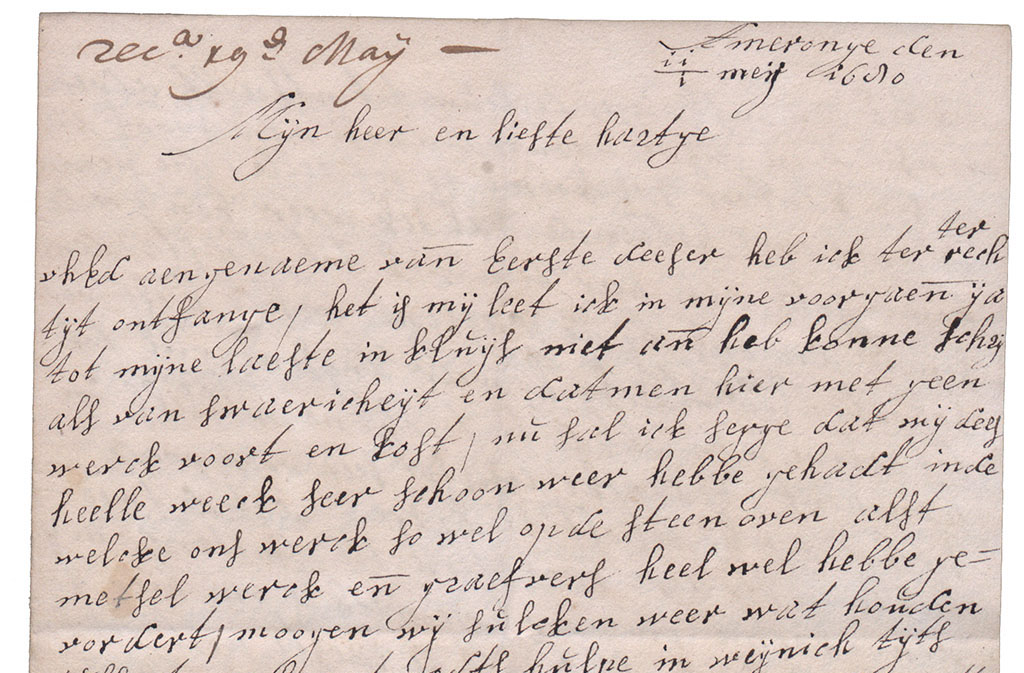 recd 19d May —
Ameronge den
11/1 meij 1680
Mijn heer en liefste hartge
uhEd aengenaeme van Eerste deeser heb ick ter rech
ter
tijt ontfange, het is mij leet ick in mijne voorgaen ja
tot mijne laeste in kluijs niet an heb konne schrij
als van swaericheijt en datmen hier met geen
werck voort en kost, nu sal ick segge dat wij dees
heelle weeck seer schoon weer hebbe gehadt inde
welcke ons werck so wel op de steen oven alst
metsel werck en graefvers heel wel hebbe ge=
vordert, moogen wij sulcken weer wat houden
hulpe in weijnich tijts